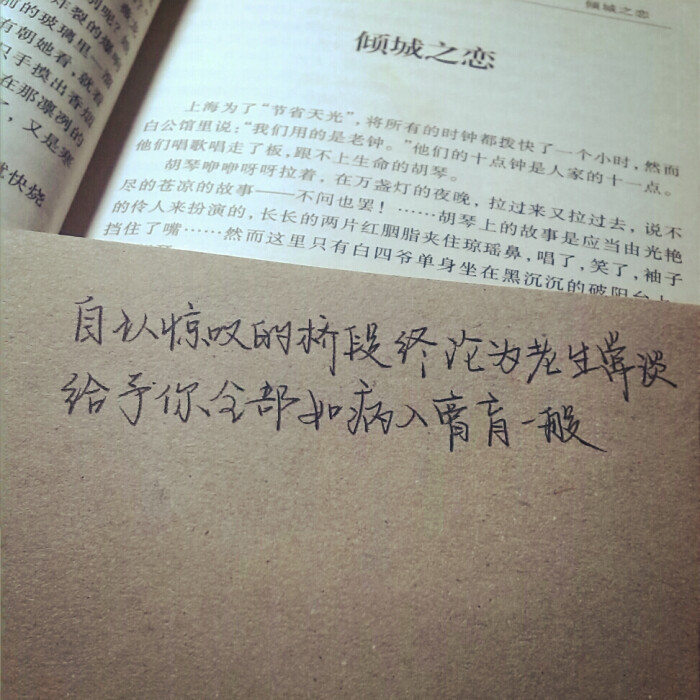 倾城之恋
倾城之恋
上海为了“节省天光”,将所有的时钟都拨快了一个小时,然而
白公馆里说:“我们用的是老钟。”他们的十点钟是人家的十一点。
他们唱歌唱走了板,跟不上生命的胡琴。
胡琴咿咿呀呀拉着,在万盏灯的夜晚,拉过来又拉过去,说不
尽的苍凉的故事——不问也罢!……胡琴上的故事是应当由光艳
的伶人来扮演的,长长的两片红胭脂夹住琼瑶鼻,唱了,笑了,袖子
挡住了嘴……然而这里只有白四爷单身坐在黑沉沉的破阳台上
炸裂的爆
前的玻璃里一
有朝她看,就看
只手摸出香烟
在那凛冽的
了,又是寒
就快烧
自认惊叹的桥段终沦为老生常谈
给予你全部如病入膏肓一般